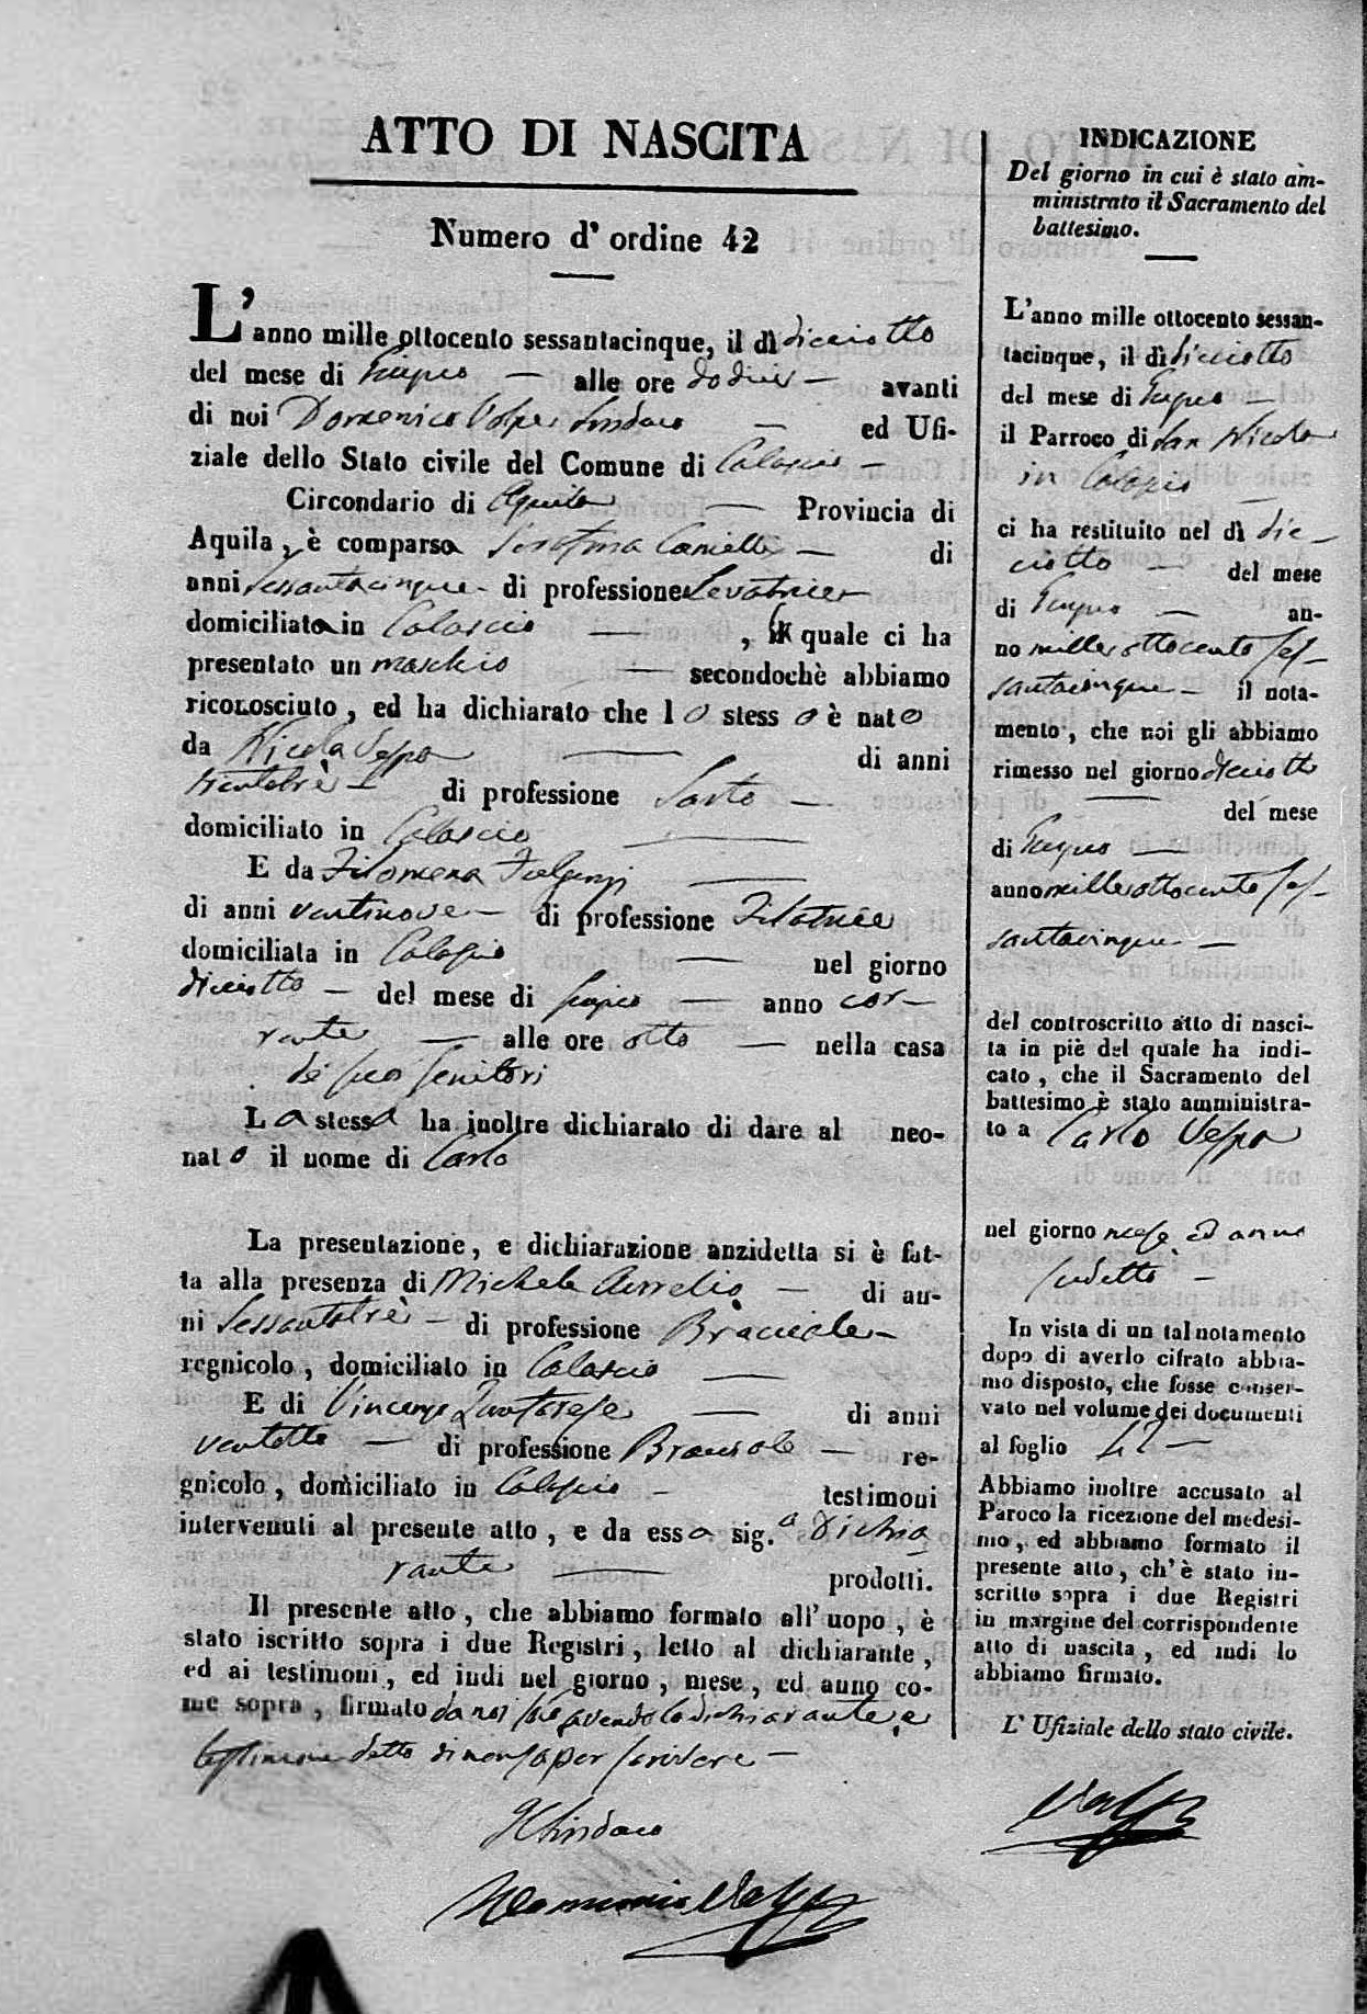 ATTO DI NASCITA
Numero d' ordine 42
L'anno mille ottocento sessantacinque, il dì diciotto
del mese di Giugno — alle ore dodici — avanti
di noi Domenico Volpe Sindaco — ed Ufi-
ziale dello Stato civile del Comune di Calascio —
Circondario di Aquila — Provincia di
Aquila, è comparsa Serafina — di
anni sessantacinque — di professione Levatrice
domiciliata in Calascio — , la quale ci ha
presentato un maschio — secondochè abbiamo
riconosciuto, ed ha dichiarato che lo stesso è nato
da Nicola Vespa — di anni
trentatrè — di professione Sarto —
domiciliato in Calascio —
E da Filomena Fulgenzi —
di anni ventinove — di professione Filatrice
domiciliata in Calascio — nel giorno
diciotto — del mese di Giugno — anno cor-
rente — alle ore otto — nella casa
de' suoi genitori
La stessa ha inoltre dichiarato di dare al neo-
nato il nome di Carlo
La presentazione, e dichiarazione anzidetta si è fat-
ta alla presenza di Michele Aurelio — di an-
ni sessantatrè — di professione Bracciale —
regnicolo, domiciliato in Calascio —
E di Vincenzo — di anni
ventotto — di professione Bracciale — re-
gnicolo, domiciliato in Calascio — testimoni
intervenuti al presente atto, e da essa sig.a dichia
rante — prodotti.
Il presente atto, che abbiamo formato all'uopo, è
stato iscritto sopra i due Registri, letto al dichiarante,
ed ai testimoni, ed indi nel giorno, mese, ed anno co-
me sopra, firmato da noi solo avendo la dichiarante e
testimoni detto di non saper scrivere —
Il Sindaco
Domenico Volpe
INDICAZIONE
Del giorno in cui è stato am-
ministrato il Sacramento del
battesimo.
L'anno mille ottocento sessan-
tacinque, il dì diciotto
del mese di Giugno —
il Parroco di San Nicola
in Calascio —
ci ha restituito nel dì dic-
ciotto — del mese
di Giugno — an-
no milleottocento ses-
santacinque — il nota-
mento, che noi gli abbiamo
rimesso nel giorno diciotto
— del mese
di Giugno —
anno milleottocento ses-
santacinque —
del controscritto atto di nasci-
ta in piè del quale ha indi-
cato, che il Sacramento del
battesimo è stato amministra-
to a Carlo Vespa
nel giorno mese ed anno
sudetto —
In vista di un tal notamento
dopo di averlo cifrato abbia-
mo disposto, che fosse conser-
vato nel volume dei documenti
al foglio 42 —
Abbiamo inoltre accusato al
Paroco la ricezione del medesi-
mo, ed abbiamo formato il
presente atto, ch'è stato in-
scritto sopra i due Registri
in margine del corrispondente
atto di nascita, ed indi lo
abbiamo firmato.
L' Ufiziale dello stato civile.
Volpe